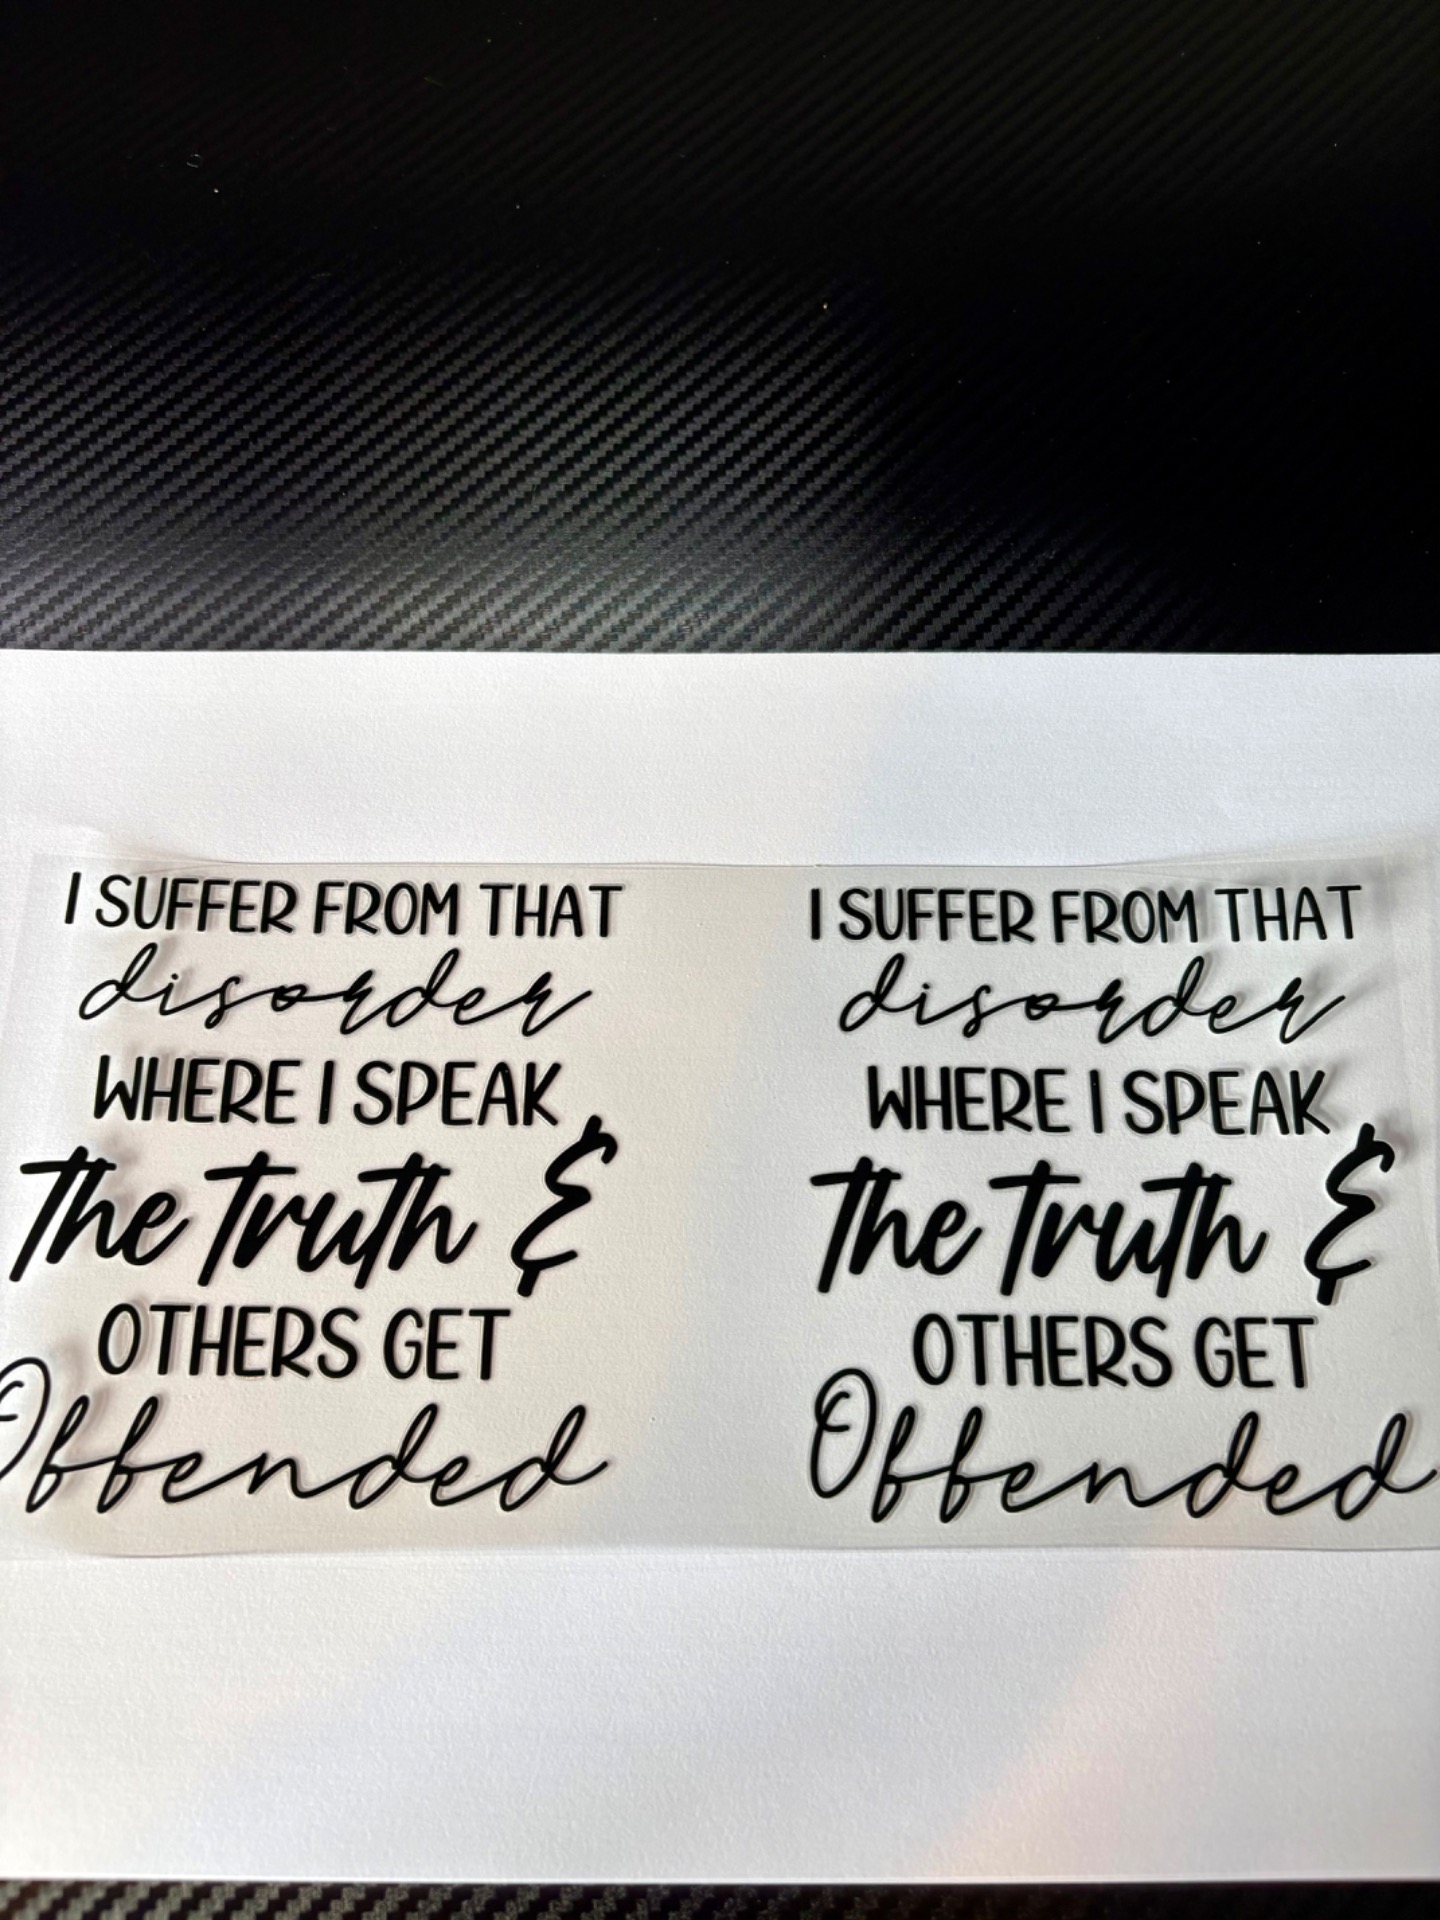 I SUFFER FROM THAT
disorder
WHERE I SPEAK
the truth &
OTHERS GET
Offended
I SUFFER FROM THAT
disorder
WHERE I SPEAK
the truth &
OTHERS GET
Offended